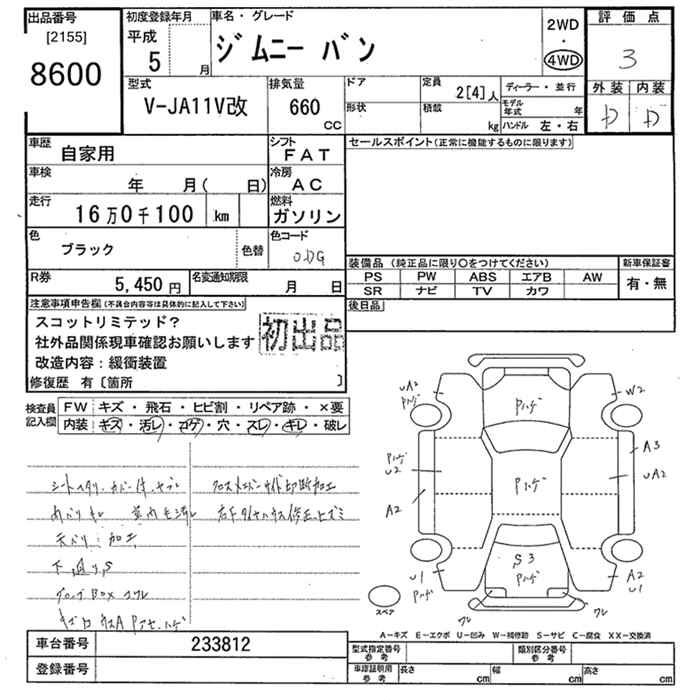 出品番号
[2155]
8600
初度登録年月
平成
5 月
車名・グレード
ジムニー バン
2WD
・
4WD
評価点
3
外装 内装
D D
型式
V-JA11V改
排気量
660
CC
ドア
形状
定員
2[4]人
積載
kg
ディーラー・並行
モデル年式 年
ハンドル 左・右
車歴
自家用
シフト
FAT
車検
年 月( 日)
冷房
AC
走行
16万0千100 km
燃料
ガソリン
色
ブラック
色替
色コード
R券
5,450 円
名変通知期限
月 日
セールスポイント(正常に機能するものに限ります)
装備品(純正品に限り○をつけてください)
新車保証書
PS PW ABS エアB AW
SR ナビ TV カワ
有・無
後日品
注意事項申告欄(不具合内容等は具体的に記入して下さい)
スコットリミテッド?
社外品関係現車確認お願いします
改造内容:緩衝装置
修復歴 有〔箇所 〕
初出品
検査員記入欄
FW キズ・飛石・ヒビ割・リペア跡・×要
内装 キズ・汚レ・コゲ・穴・スレ・キレ・破レ
UA2
Pハゲ
Pハゲ
W2
A3
Pハゲ
U2
UA2
Pハゲ
A2
S3
Pハゲ
U1
A2
U1
スペア
ワレ
ワレ
A-キズ E-エクボ U-凹み W-補修跡 S-サビ C-腐食 XX-交換済
車台番号 233812
登録番号
型式指定番号
参考
類別区分番号
参考
車庫証明用
参考
長さ cm
幅 cm
高さ cm